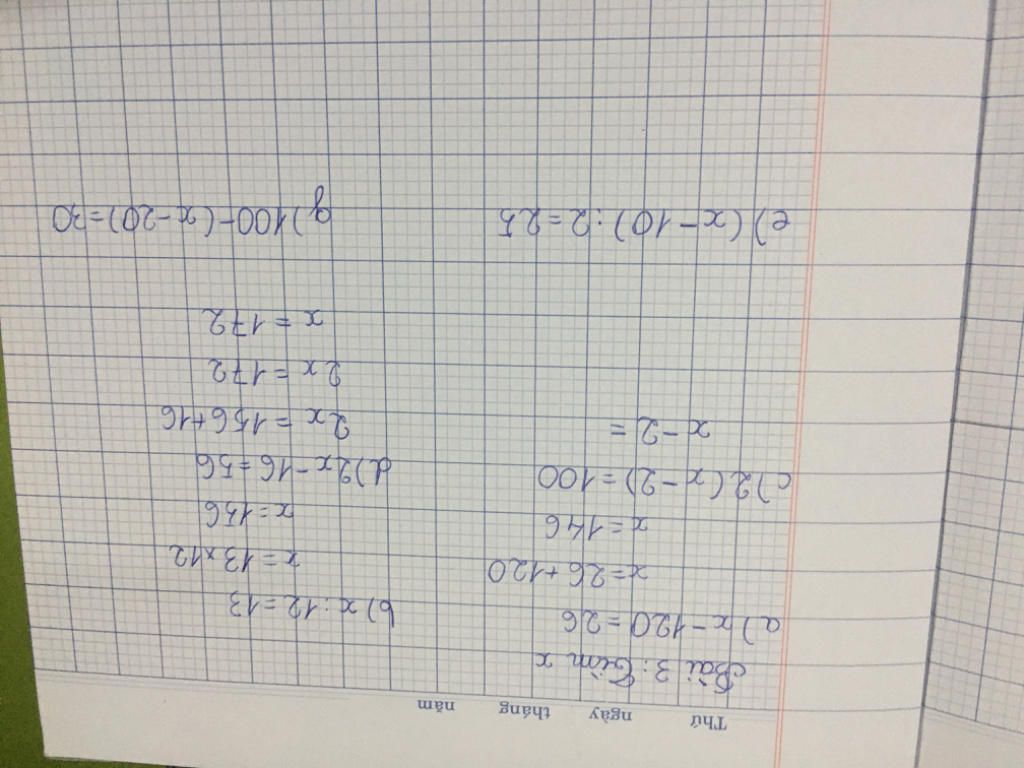 Thứ ngày tháng năm
Bài 3: Tìm x
a) x - 120 = 26
x = 26 + 120
x = 146
b) x : 12 = 13
x = 13 x 12
x = 156
c) 2 (x - 2) = 100
x - 2 =
d) 2x - 16 = 56
2x = 156 + 16
2x = 172
x = 172
e) (x - 10) : 2 = 25
g) 100 - (x - 20) = 30